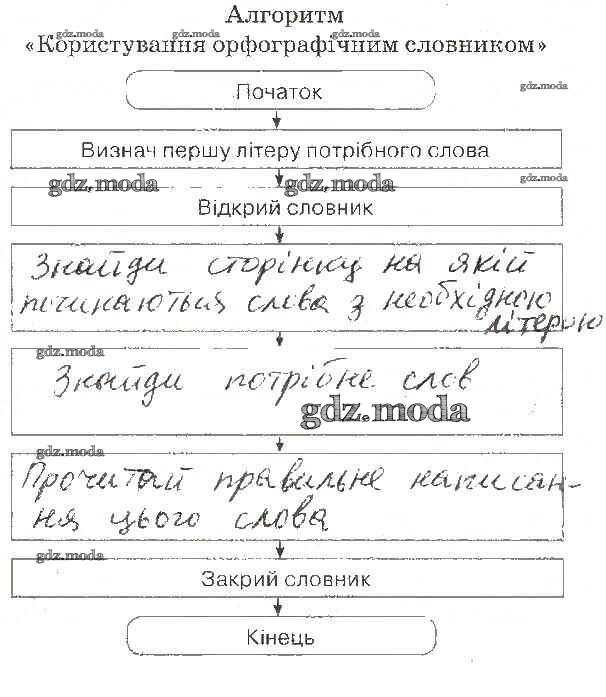 Алгоритм
«Користування орфографічним словником»
gdz.moda gdz.moda gdz.moda
gdz.moda
Початок
Визнач першу літеру потрібного слова
gdz.moda gdz.moda gdz.moda
Відкрий словник
Знайди сторінку на якій
починаються слова з необхідною
літерою
gdz.moda
Знайди потрібне слов
gdz.moda
gdz.moda
Прочитай правильне написан-
ня цього слова
gdz.moda
Закрий словник
Кінець